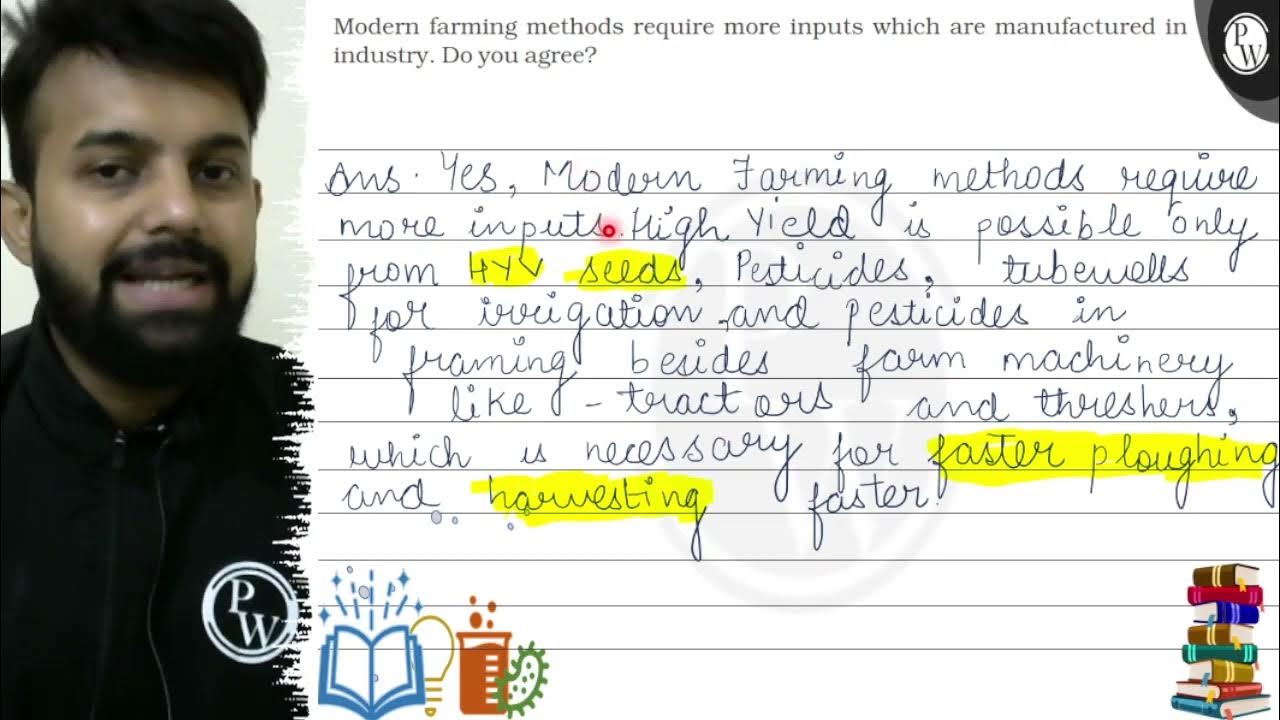 Modern farming methods require more inputs which are manufactured in
industry. Do you agree?
PW
Ans. Yes, Modern Farming methods require
more inputs. High Yield is possible only
from HYV seeds, Pesticides, tubewells
for irrigation, and pesticides in
framing besides farm machinery
like - tractors and threshers,
which is necessary for faster ploughing
and harvesting faster.
PW